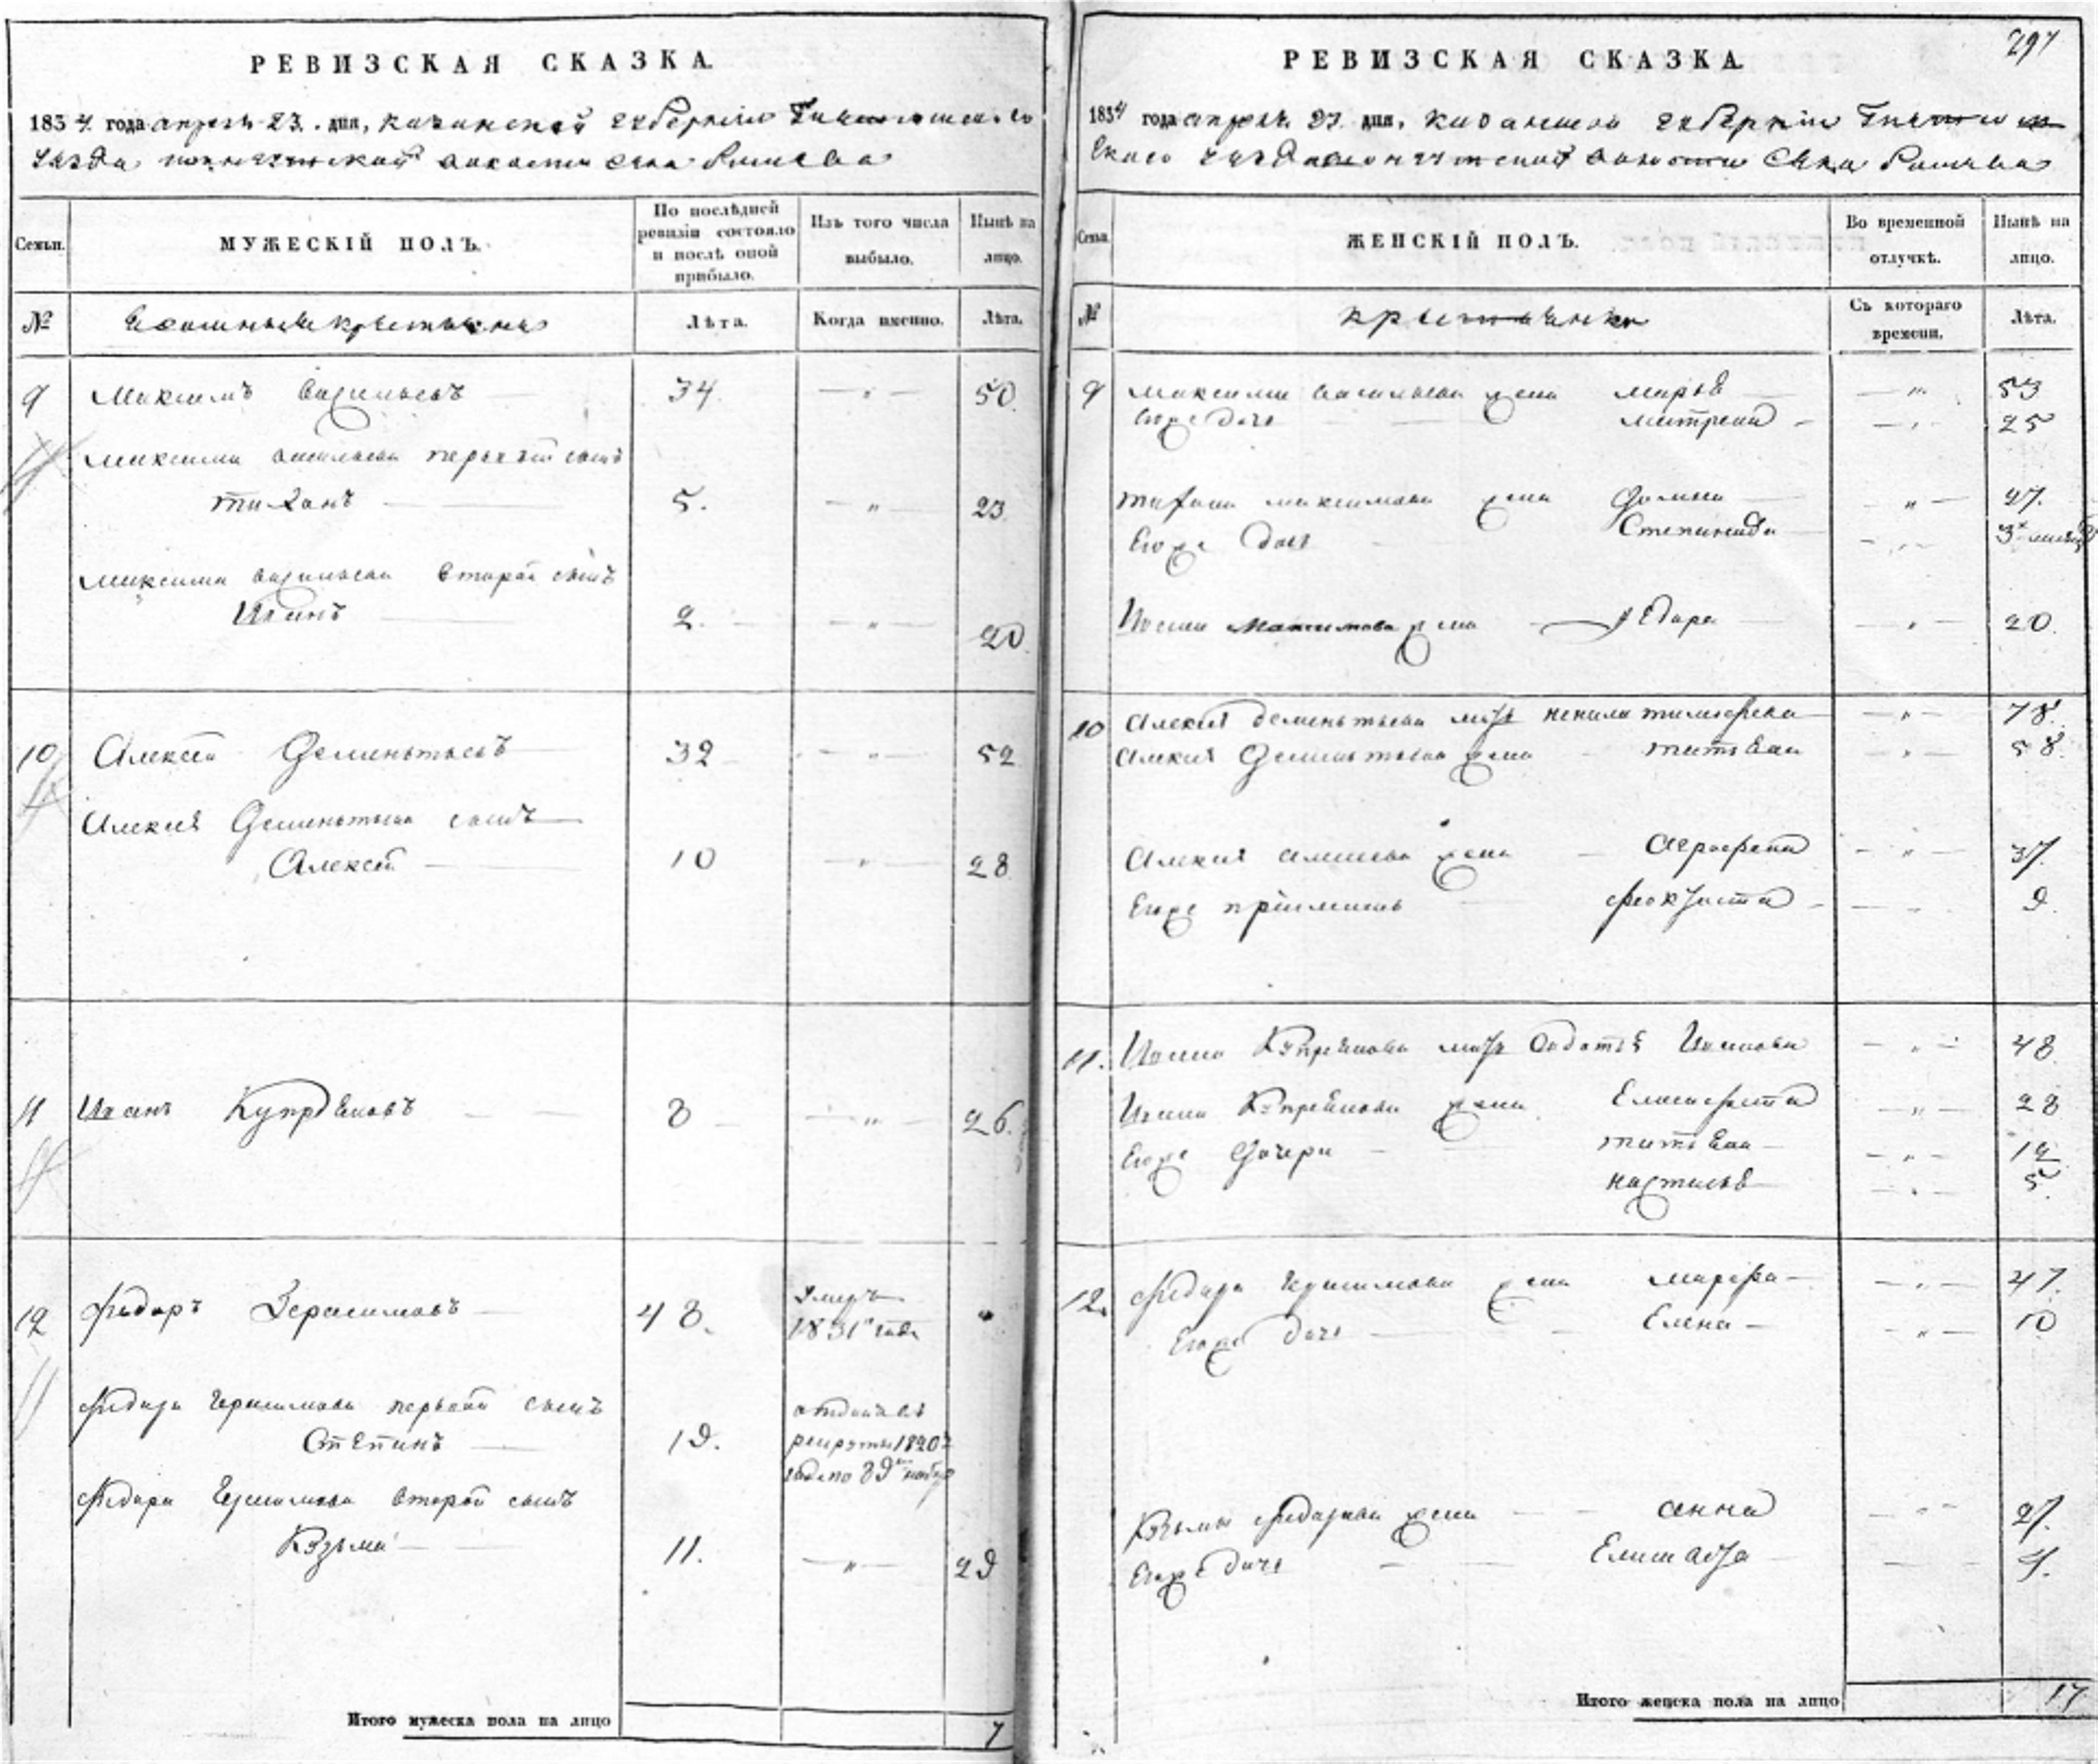 РЕВИЗСКАЯ СКАЗКА.
1834 года апреля 23. дня, казанской губернии
уезда волости села
Семьи.
МУЖЕСКІЙ ПОЛЪ.
По послѣдней ревизіи состояло и послѣ оной прибыло.
Изъ того числа выбыло.
Нынѣ на лицо.
№
крестьяне
Лѣта.
Когда именно.
Лѣта.
9 Максимъ Васильевъ 34 — " — 50
Максима Васильева первый сынъ
тихонъ 5. — " — 23
Максима Васильева второй сынъ
Иванъ 2. — " — 20
10 Алексей Деминьтьевъ 32 — " — 52
Алексея Деминьтьева сынъ
Алексей 10 — " — 28
11 Иванъ Купреяновъ 8 — " — 26.
12 Федоръ Герасимовъ 48. умеръ
1831 года
Федора Герасимова первой сынъ
Степанъ 19. отданъ въ
рекруты 1820
Федора Герасимова второй сынъ
Кузьма 11. — " — 29
Итого мужеска пола на лицо 7
297
РЕВИЗСКАЯ СКАЗКА.
1834 года апреля 23 дня, казанской губернии
уезда волости села
Семьи.
ЖЕНСКІЙ ПОЛЪ.
Во временной отлучкѣ.
Нынѣ на лицо.
№
крестьянки
Съ котораго времени.
Лѣта.
9 Максима Васильева жена марья — " — 53
Ево же дочь матрена — " — 25
тихона максимова жена — " — 27.
Ево же дочь Степанида — " — 3х
Ивана Максимова жена Федора — " — 20.
10 Алексея деменьтьева мать ненила тимофеева — " — 78.
Алексея Деминьтьева жена татьяна — " — 58.
Алексея алексеева жена аграфена — " — 37.
Ево же приемышь феоктиста — " — 9.
11. Ивана Купреянова мать Иванова — " — 48
Ивана Купреянова жена Елисафета — " — 28
Ево же Дочери татьяна — " — 12
настасья — " — 5.
12. Федора Герасимова жена марфа — " — 47.
Ево же дочь Елена — " — 10
Кузьмы Федорова жена анна — " — 27.
Ево же дочь — 4.
Итого женска пола на лицо 17